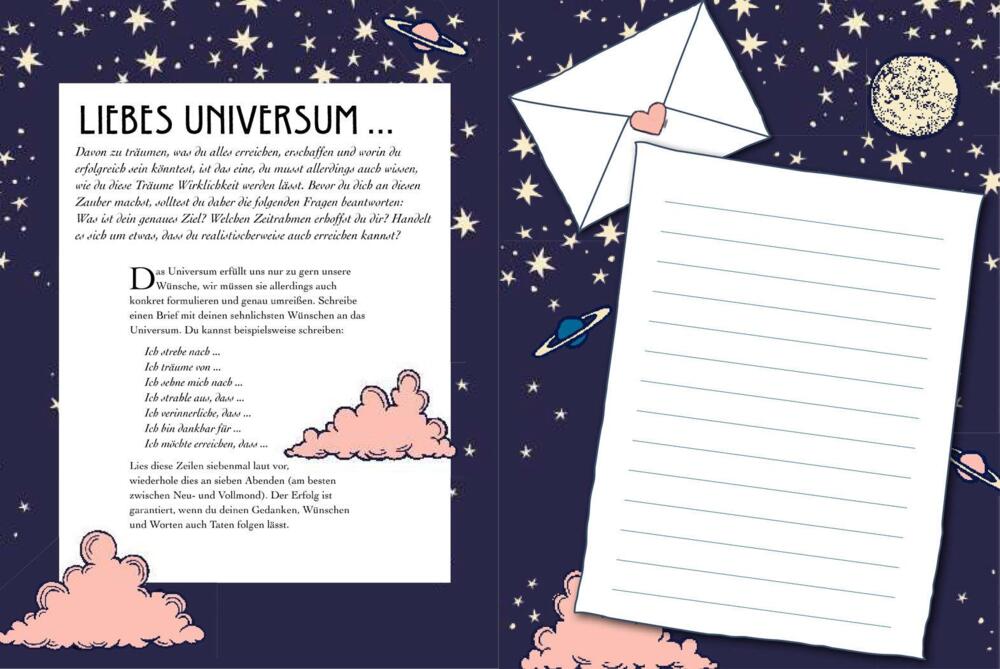 LIEBES UNIVERSUM ...
Davon zu träumen, was du alles erreichen, erschaffen und worin du
erfolgreich sein könntest, ist das eine, du musst allerdings auch wissen,
wie du diese Träume Wirklichkeit werden lässt. Bevor du dich an diesen
Zauber machst, solltest du daher die folgenden Fragen beantworten:
Was ist dein genaues Ziel? Welchen Zeitrahmen erhoffst du dir? Handelt
es sich um etwas, dass du realistischerweise auch erreichen kannst?
Das Universum erfüllt uns nur zu gern unsere
Wünsche, wir müssen sie allerdings auch
konkret formulieren und genau umreißen. Schreibe
einen Brief mit deinen sehnlichsten Wünschen an das
Universum. Du kannst beispielsweise schreiben:
Ich strebe nach ...
Ich träume von ...
Ich sehne mich nach ...
Ich strahle aus, dass ...
Ich verinnerliche, dass ...
Ich bin dankbar für ...
Ich möchte erreichen, dass ...
Lies diese Zeilen siebenmal laut vor,
wiederhole dies an sieben Abenden (am besten
zwischen Neu- und Vollmond). Der Erfolg ist
garantiert, wenn du deinen Gedanken, Wünschen
und Worten auch Taten folgen lässt.